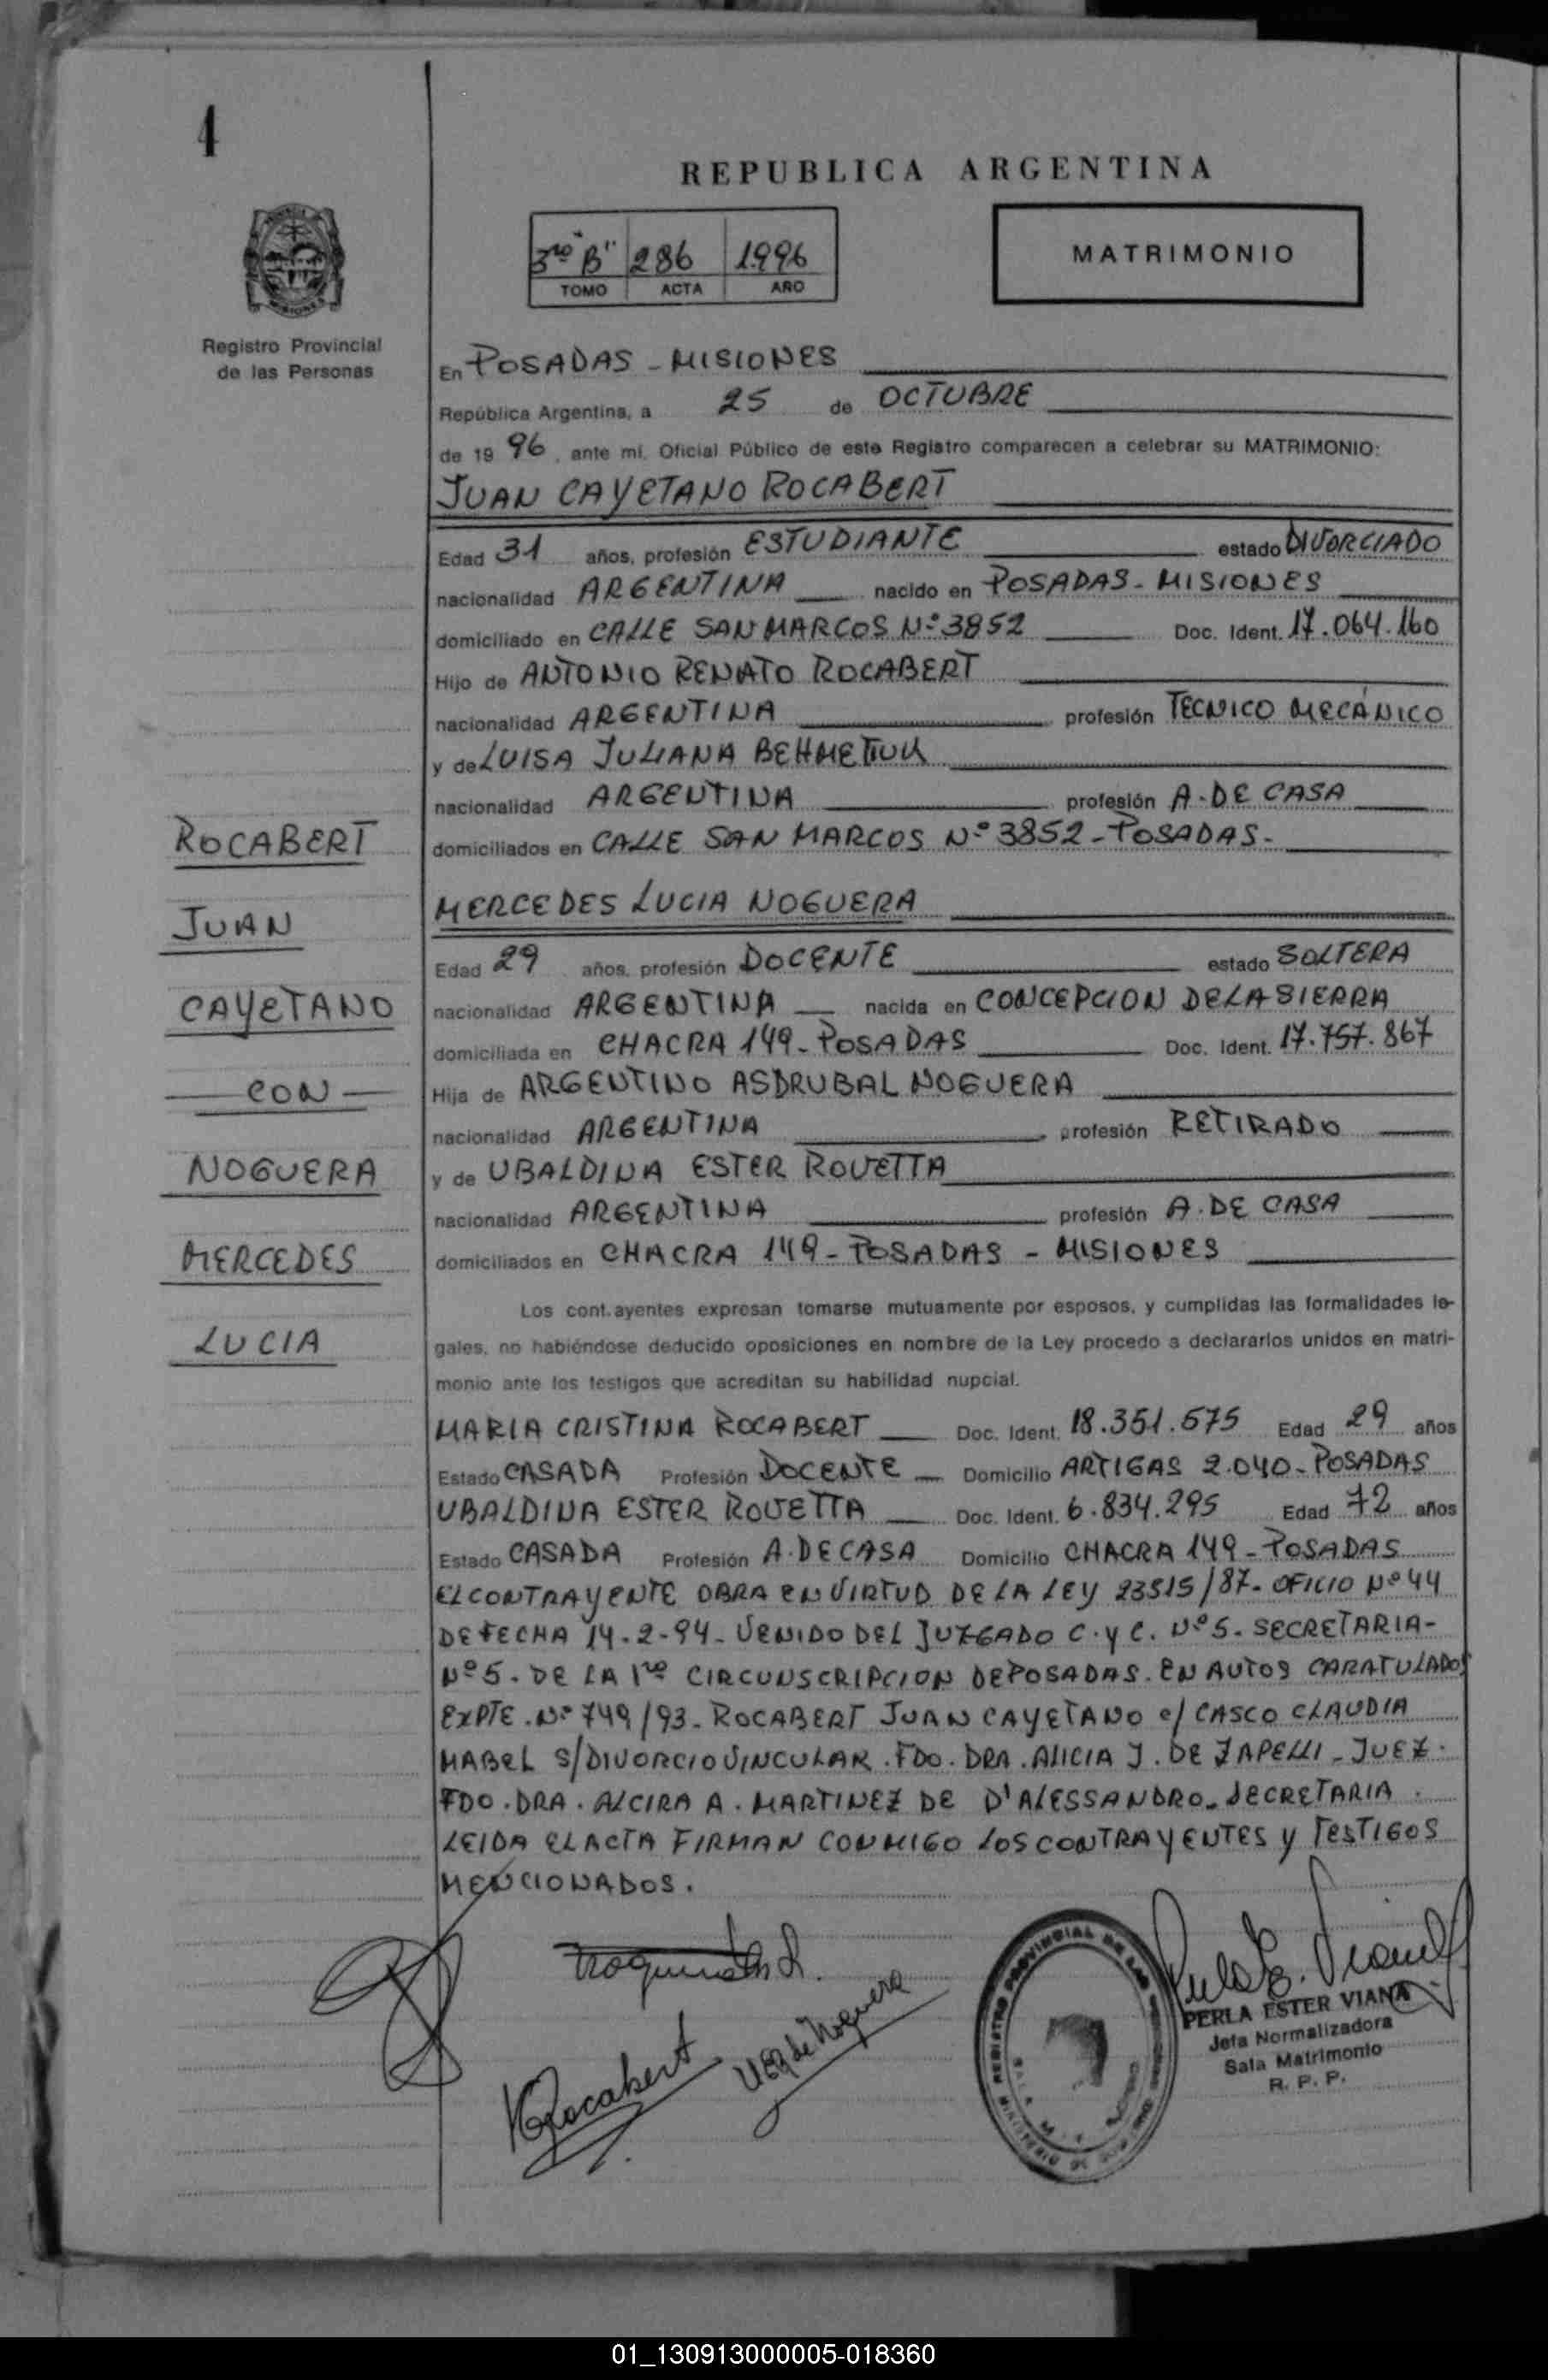 4
REPUBLICA ARGENTINA
3ro "B" 286 1996
TOMO ACTA AÑO
MATRIMONIO
Registro Provincial
de las Personas
En POSADAS - MISIONES
República Argentina, a 25 de OCTUBRE
de 19 96, ante mí, Oficial Público de este Registro comparecen a celebrar su MATRIMONIO:
JUAN CAYETANO ROCABERT
Edad 31 años, profesión ESTUDIANTE estado DIVORCIADO
nacionalidad ARGENTINA nacido en POSADAS - MISIONES
domiciliado en CALLE SAN MARCOS Nº 3852 Doc. Ident. 17.064.160
Hijo de ANTONIO RENATO ROCABERT
nacionalidad ARGENTINA profesión TECNICO MECÁNICO
y de LUISA JULIANA
nacionalidad ARGENTINA profesión A. DE CASA
domiciliados en CALLE SAN MARCOS Nº 3852 - POSADAS -
MERCEDES LUCIA NOGUERA
Edad 29 años, profesión DOCENTE estado SOLTERA
nacionalidad ARGENTINA nacida en CONCEPCION DE LA SIERRA
domiciliada en CHACRA 149 - POSADAS Doc. Ident. 17.757.867
Hija de ARGENTINO ASDRUBAL NOGUERA
nacionalidad ARGENTINA profesión RETIRADO
y de UBALDINA ESTER ROVETTA
nacionalidad ARGENTINA profesión A. DE CASA
domiciliados en CHACRA 149 - POSADAS - MISIONES
ROCABERT
JUAN
CAYETANO
— CON —
NOGUERA
MERCEDES
LUCIA
Los cont.ayentes expresan tomarse mutuamente por esposos, y cumplidas las formalidades le-
gales, no habiéndose deducido oposiciones en nombre de la Ley procedo a declararlos unidos en matri-
monio ante los testigos que acreditan su habilidad nupcial.
MARIA CRISTINA ROCABERT Doc. Ident. 18.351.575 Edad 29 años
Estado CASADA Profesión DOCENTE Domicilio ARTIGAS 2.040 - POSADAS
UBALDINA ESTER ROVETTA Doc. Ident. 6.834.295 Edad 72 años
Estado CASADA Profesión A. DE CASA Domicilio CHACRA 149 - POSADAS
EL CONTRAYENTE OBRA EN VIRTUD DE LA LEY 23515/87 - OFICIO Nº 44
DE FECHA 14-2-94 - VENIDO DEL JUZGADO C. y C. Nº 5 - SECRETARIA -
Nº 5 - DE LA 1ra CIRCUNSCRIPCION DE POSADAS. EN AUTOS CARATULADOS
EXPTE. Nº 749/93 - ROCABERT JUAN CAYETANO c/ CASCO CLAUDIA
MABEL S/DIVORCIO VINCULAR. FDO. DRA. ALICIA J. DE ZAPELLI - JUEZ.
FDO. DRA. ALCIRA A. MARTINEZ DE D'ALESSANDRO - SECRETARIA.
LEIDA EL ACTA FIRMAN CONMIGO LOS CONTRAYENTES y TESTIGOS
MENCIONADOS.
Rocabert
de Noguera
REGISTRO PROVINCIAL DE LAS
PERLA ESTER VIANA
Jefa Normalizadora
Sala Matrimonio
R. P. P.
01_130913000005-018360